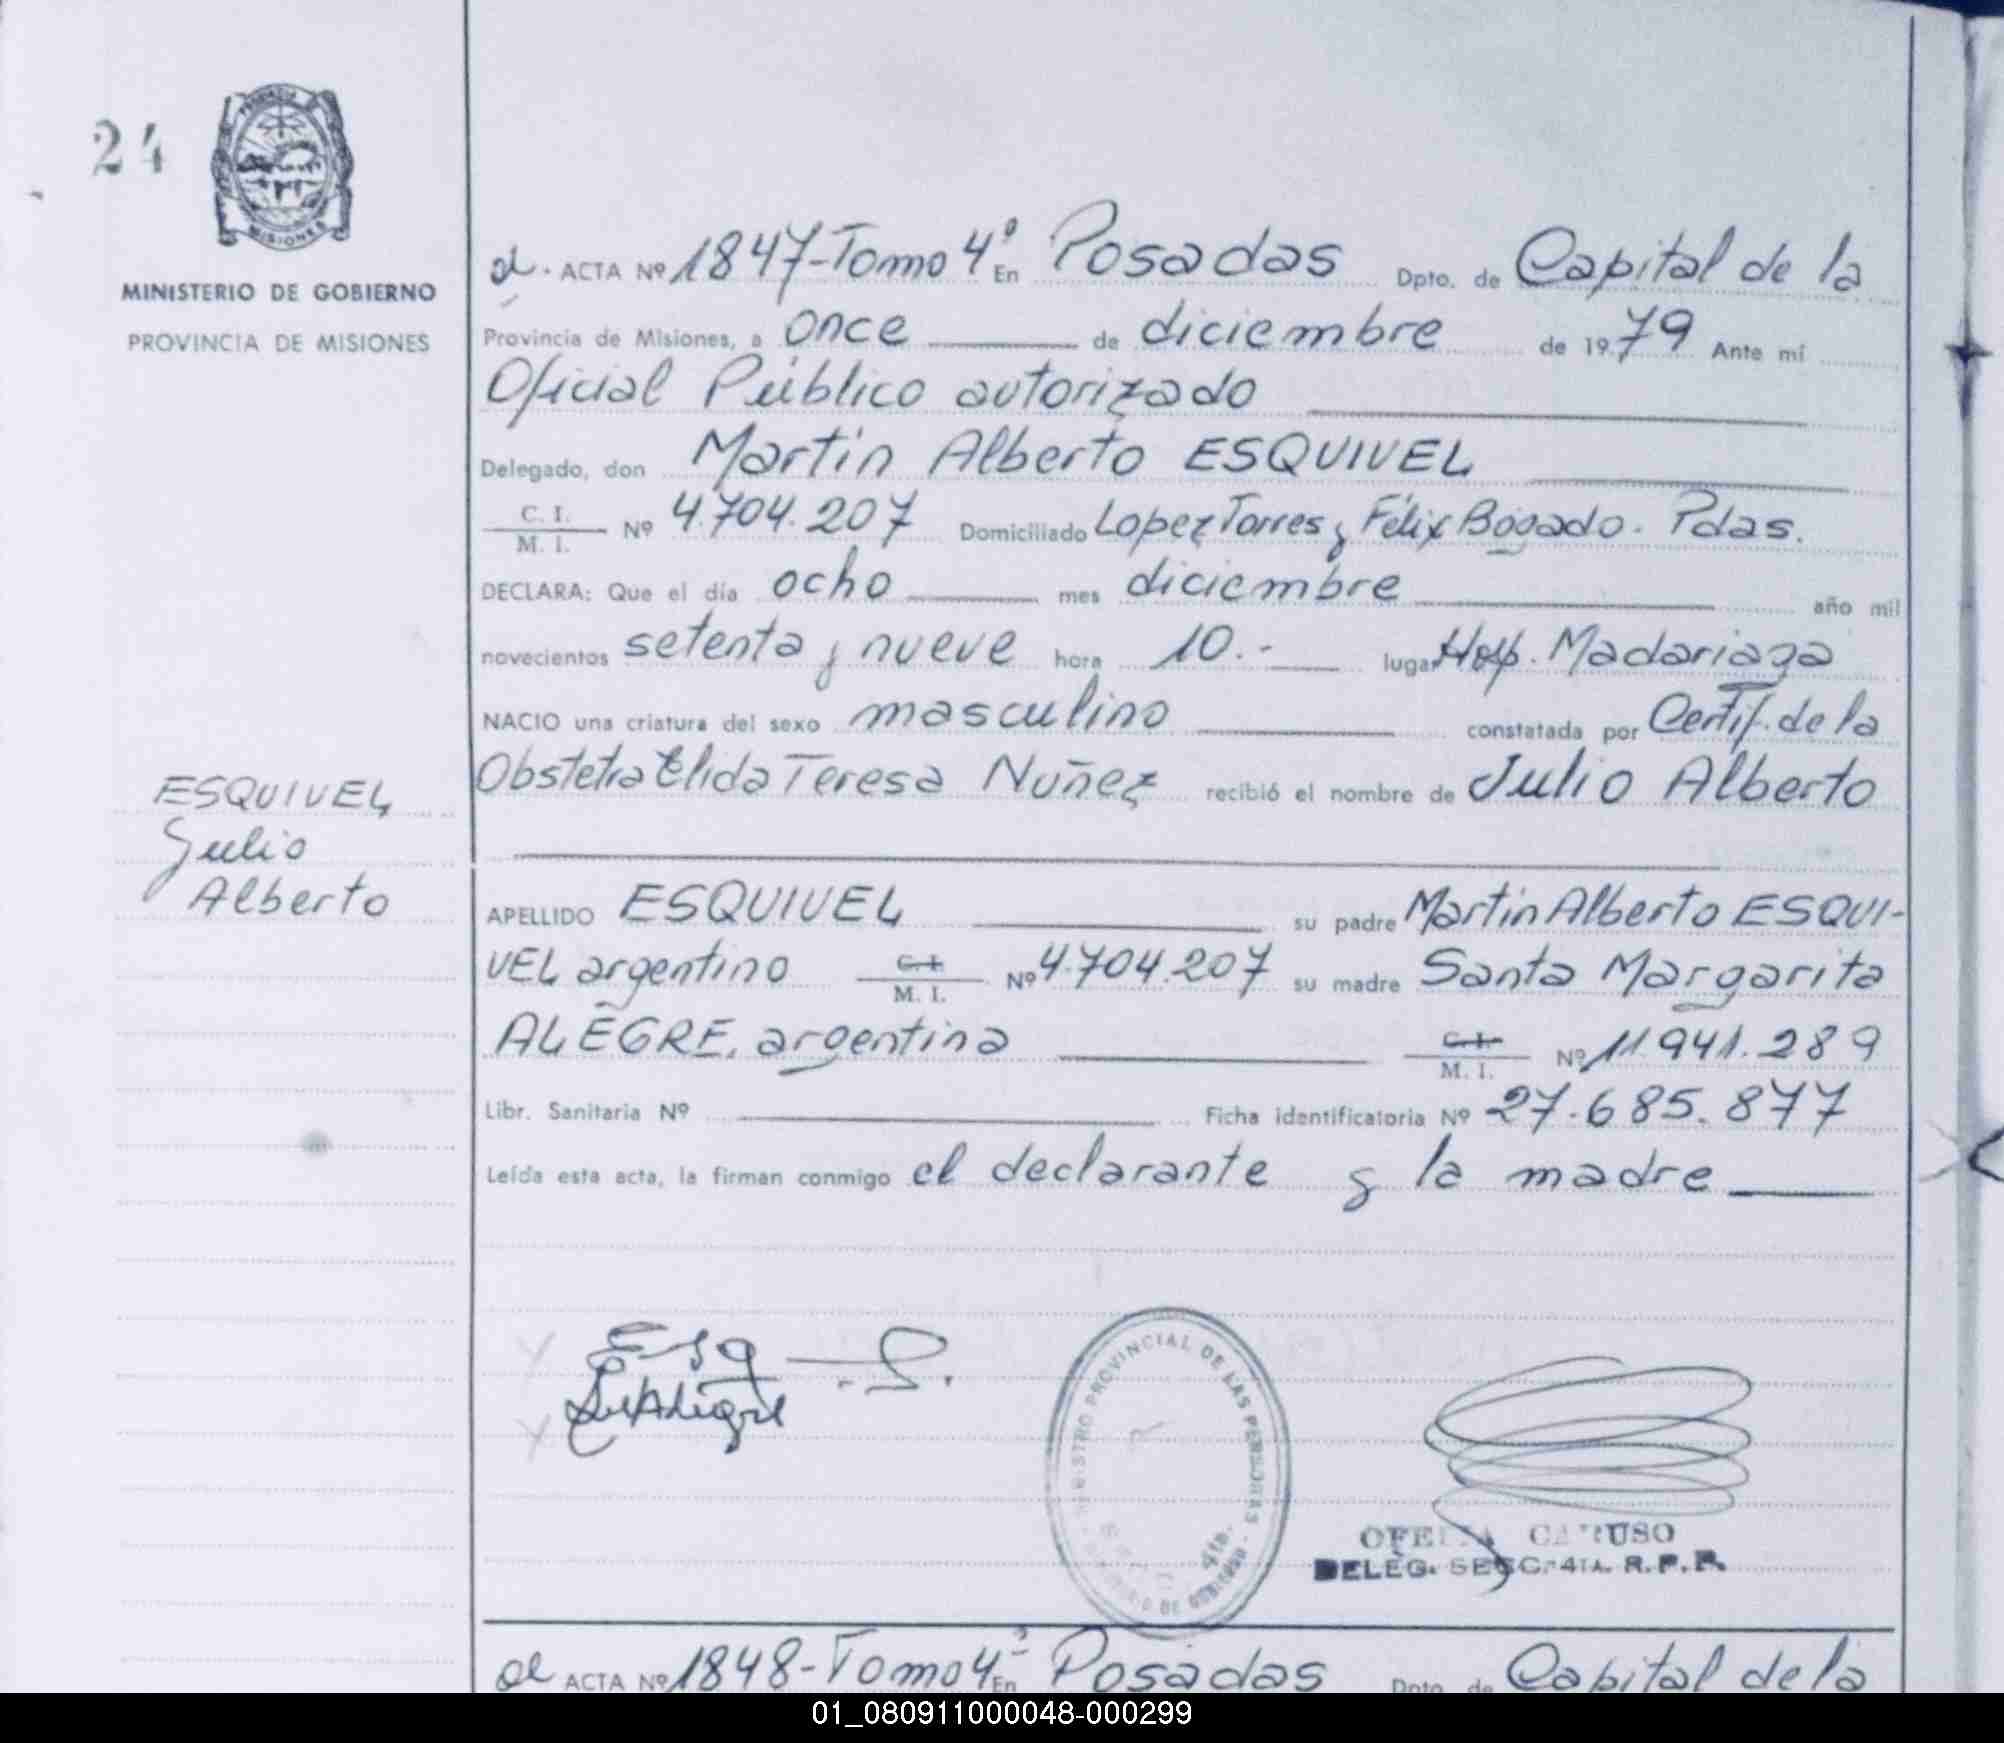 24
PROVINCIA DE
MISIONES
MINISTERIO DE GOBIERNO
PROVINCIA DE MISIONES
ESQUIVEL
Julio
Alberto
ACTA Nº 1847-Tomo 4º En Posadas Dpto. de Capital de la
Provincia de Misiones, a once de diciembre de 1979 Ante mí
Oficial Público autorizado
Delegado, don Martin Alberto ESQUIVEL
C. I.
M. I. Nº 4.704.207 Domiciliado Lopez Torres y Félix Bogado. Pdas.
DECLARA: Que el día ocho mes diciembre año mil
novecientos setenta y nueve hora 10.- lugar Hosp. Madariaga
NACIO una criatura del sexo masculino constatada por Certif. de la
Obstetra Elida Teresa Nuñez recibió el nombre de Julio Alberto
APELLIDO ESQUIVEL su padre Martin Alberto ESQUI-
VEL argentino C. I. M. I. Nº 4.704.207 su madre Santa Margarita
ALEGRE, argentina C. I. M. I. Nº 11.941.289
Libr. Sanitaria Nº Ficha identificatoria Nº 27.685.877
Leída esta acta, la firman conmigo el declarante y la madre
REGISTRO PROVINCIAL DE LAS PERSONAS
OFELIA CARUSO
DELEG. SECC. 4TA. R.P.P.
ACTA Nº 1848-Tomo 4º En Posadas Dpto. de Capital de la
01_080911000048-000299